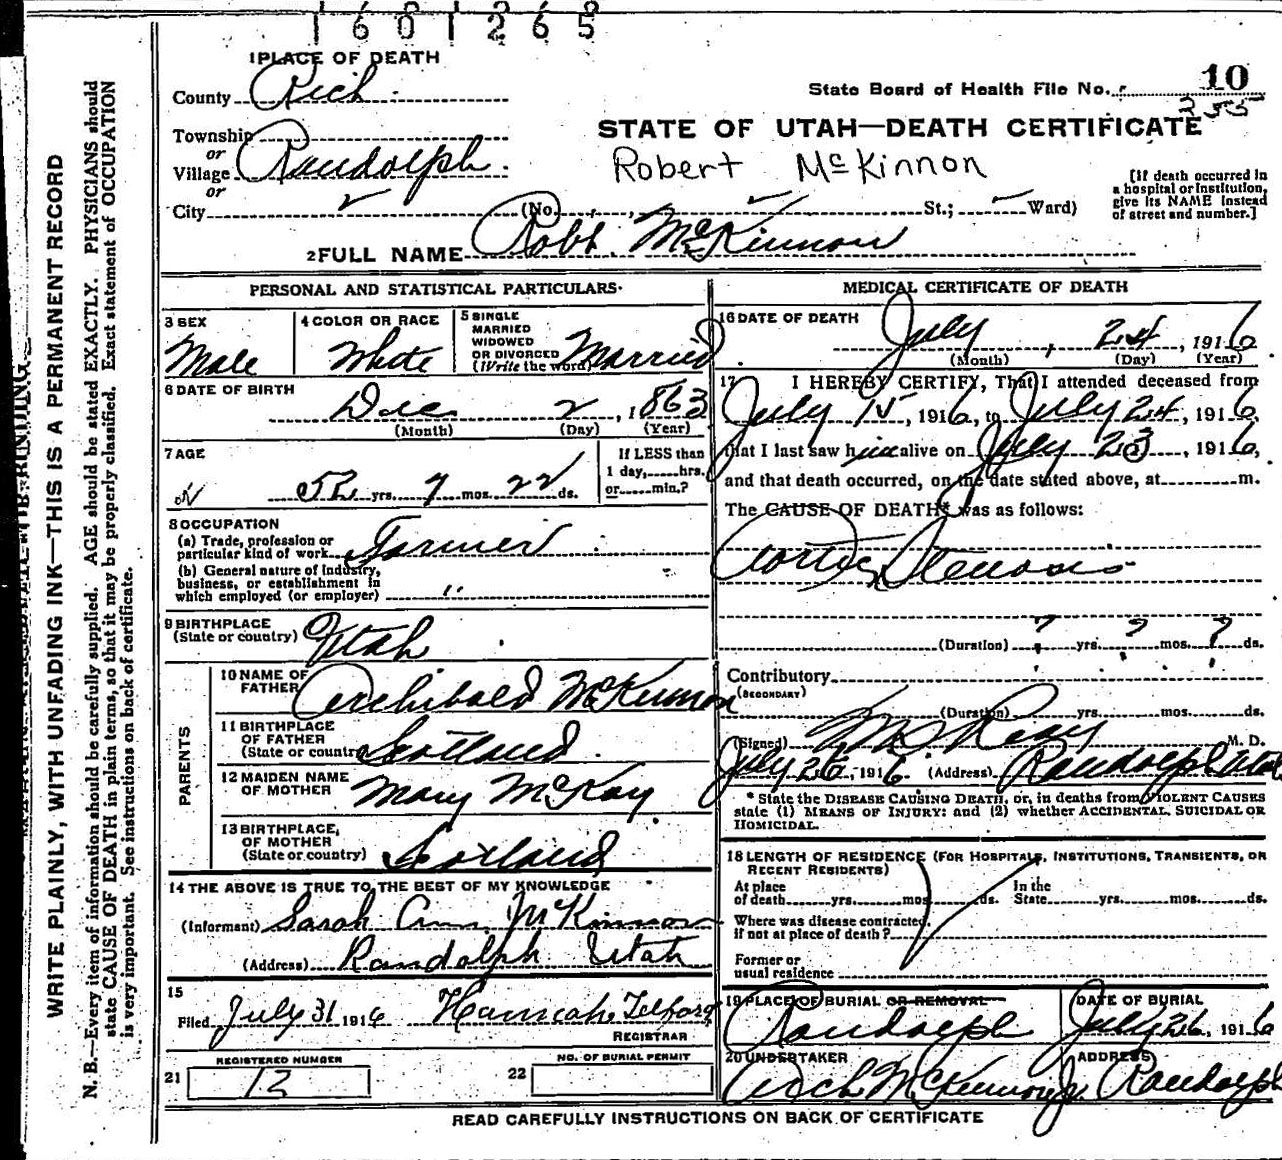 1601265
1 PLACE OF DEATH
County Rich
State Board of Health File No. 10
255
STATE OF UTAH—DEATH CERTIFICATE
Robert McKinnon
Township
or
Village Randolph
or
City (No. St.; Ward)
[If death occurred in a hospital or institution, give its NAME instead of street and number.]
2 FULL NAME Robt. McKinnon
PERSONAL AND STATISTICAL PARTICULARS
3 SEX
Male
4 COLOR OR RACE
White
5 SINGLE
MARRIED
WIDOWED
OR DIVORCED
(Write the word) Married
6 DATE OF BIRTH
Dec 2, 1863
(Month) (Day) (Year)
7 AGE
52 yrs. 7 mos. 22 ds.
If LESS than
1 day, hrs.
or min.?
8 OCCUPATION
(a) Trade, profession or
particular kind of work Farmer
(b) General nature of Industry,
business, or establishment in
which employed (or employer) "
9 BIRTHPLACE
(State or country) Utah
PARENTS
10 NAME OF
FATHER Archibald McKinnon
11 BIRTHPLACE
OF FATHER
(State or country) Scotland
12 MAIDEN NAME
OF MOTHER Mary McKay
13 BIRTHPLACE
OF MOTHER
(State or country) Scotland
14 THE ABOVE IS TRUE TO THE BEST OF MY KNOWLEDGE
(Informant) Sarah Ann McKinnon
(Address) Randolph Utah
15
Filed July 31 1916 Hannah Telford
REGISTRAR
REGISTERED NUMBER
21 12
NO. OF BURIAL PERMIT
22
MEDICAL CERTIFICATE OF DEATH
16 DATE OF DEATH
July, 24, 1916
(Month) (Day) (Year)
17 I HEREBY CERTIFY, That I attended deceased from
July 15, 1916, to July 24, 1916,
that I last saw him alive on July 23, 1916,
and that death occurred, on the date stated above, at m.
The CAUSE OF DEATH* was as follows:
Aortic Stenosis
(Duration) ? yrs. ? mos. ? ds.
Contributory
(SECONDARY)
(Duration) yrs. mos. ds.
(Signed) M. D.
July 26, 1916 (Address) Randolph Utah
* State the DISEASE CAUSING DEATH, or, in deaths from VIOLENT CAUSES
state (1) MEANS OF INJURY: and (2) whether ACCIDENTAL, SUICIDAL OR
HOMICIDAL.
18 LENGTH OF RESIDENCE (FOR HOSPITALS, INSTITUTIONS, TRANSIENTS, OR
RECENT RESIDENTS)
At place
of death yrs. mos. ds.
In the
State yrs. mos. ds.
Where was disease contracted,
if not at place of death?
Former or
usual residence
19 PLACE OF BURIAL OR REMOVAL
Randolph
DATE OF BURIAL
July 26, 1916
20 UNDERTAKER
Arch McKinnon Jr.
ADDRESS
Randolph
READ CAREFULLY INSTRUCTIONS ON BACK OF CERTIFICATE
WRITE PLAINLY, WITH UNFADING INK—THIS IS A PERMANENT RECORD
N. B.—Every item of information should be carefully supplied. AGE should be stated EXACTLY. PHYSICIANS should
state CAUSE OF DEATH in plain terms, so that it may be properly classified. Exact statement of OCCUPATION
is very important. See instructions on back of certificate.